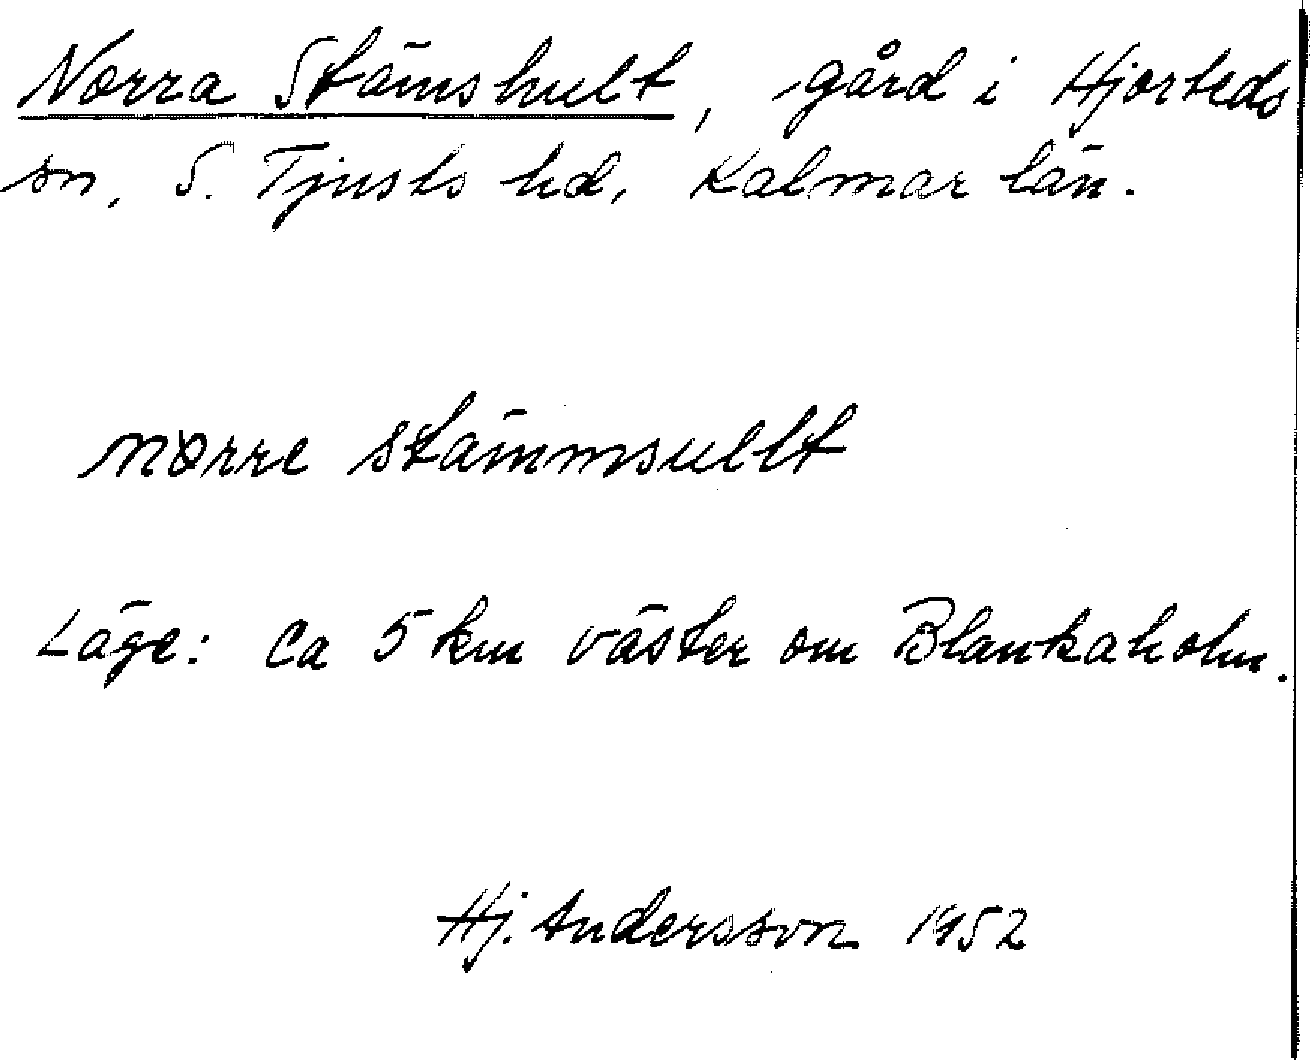 Norra Stämshult, gård i Hjorteds
sn, S. Tjusts hd, Kalmar län.
norre stämmsullt
Läge: Ca 5 km väster om Blankaholm.
Hj. Andersson 1952